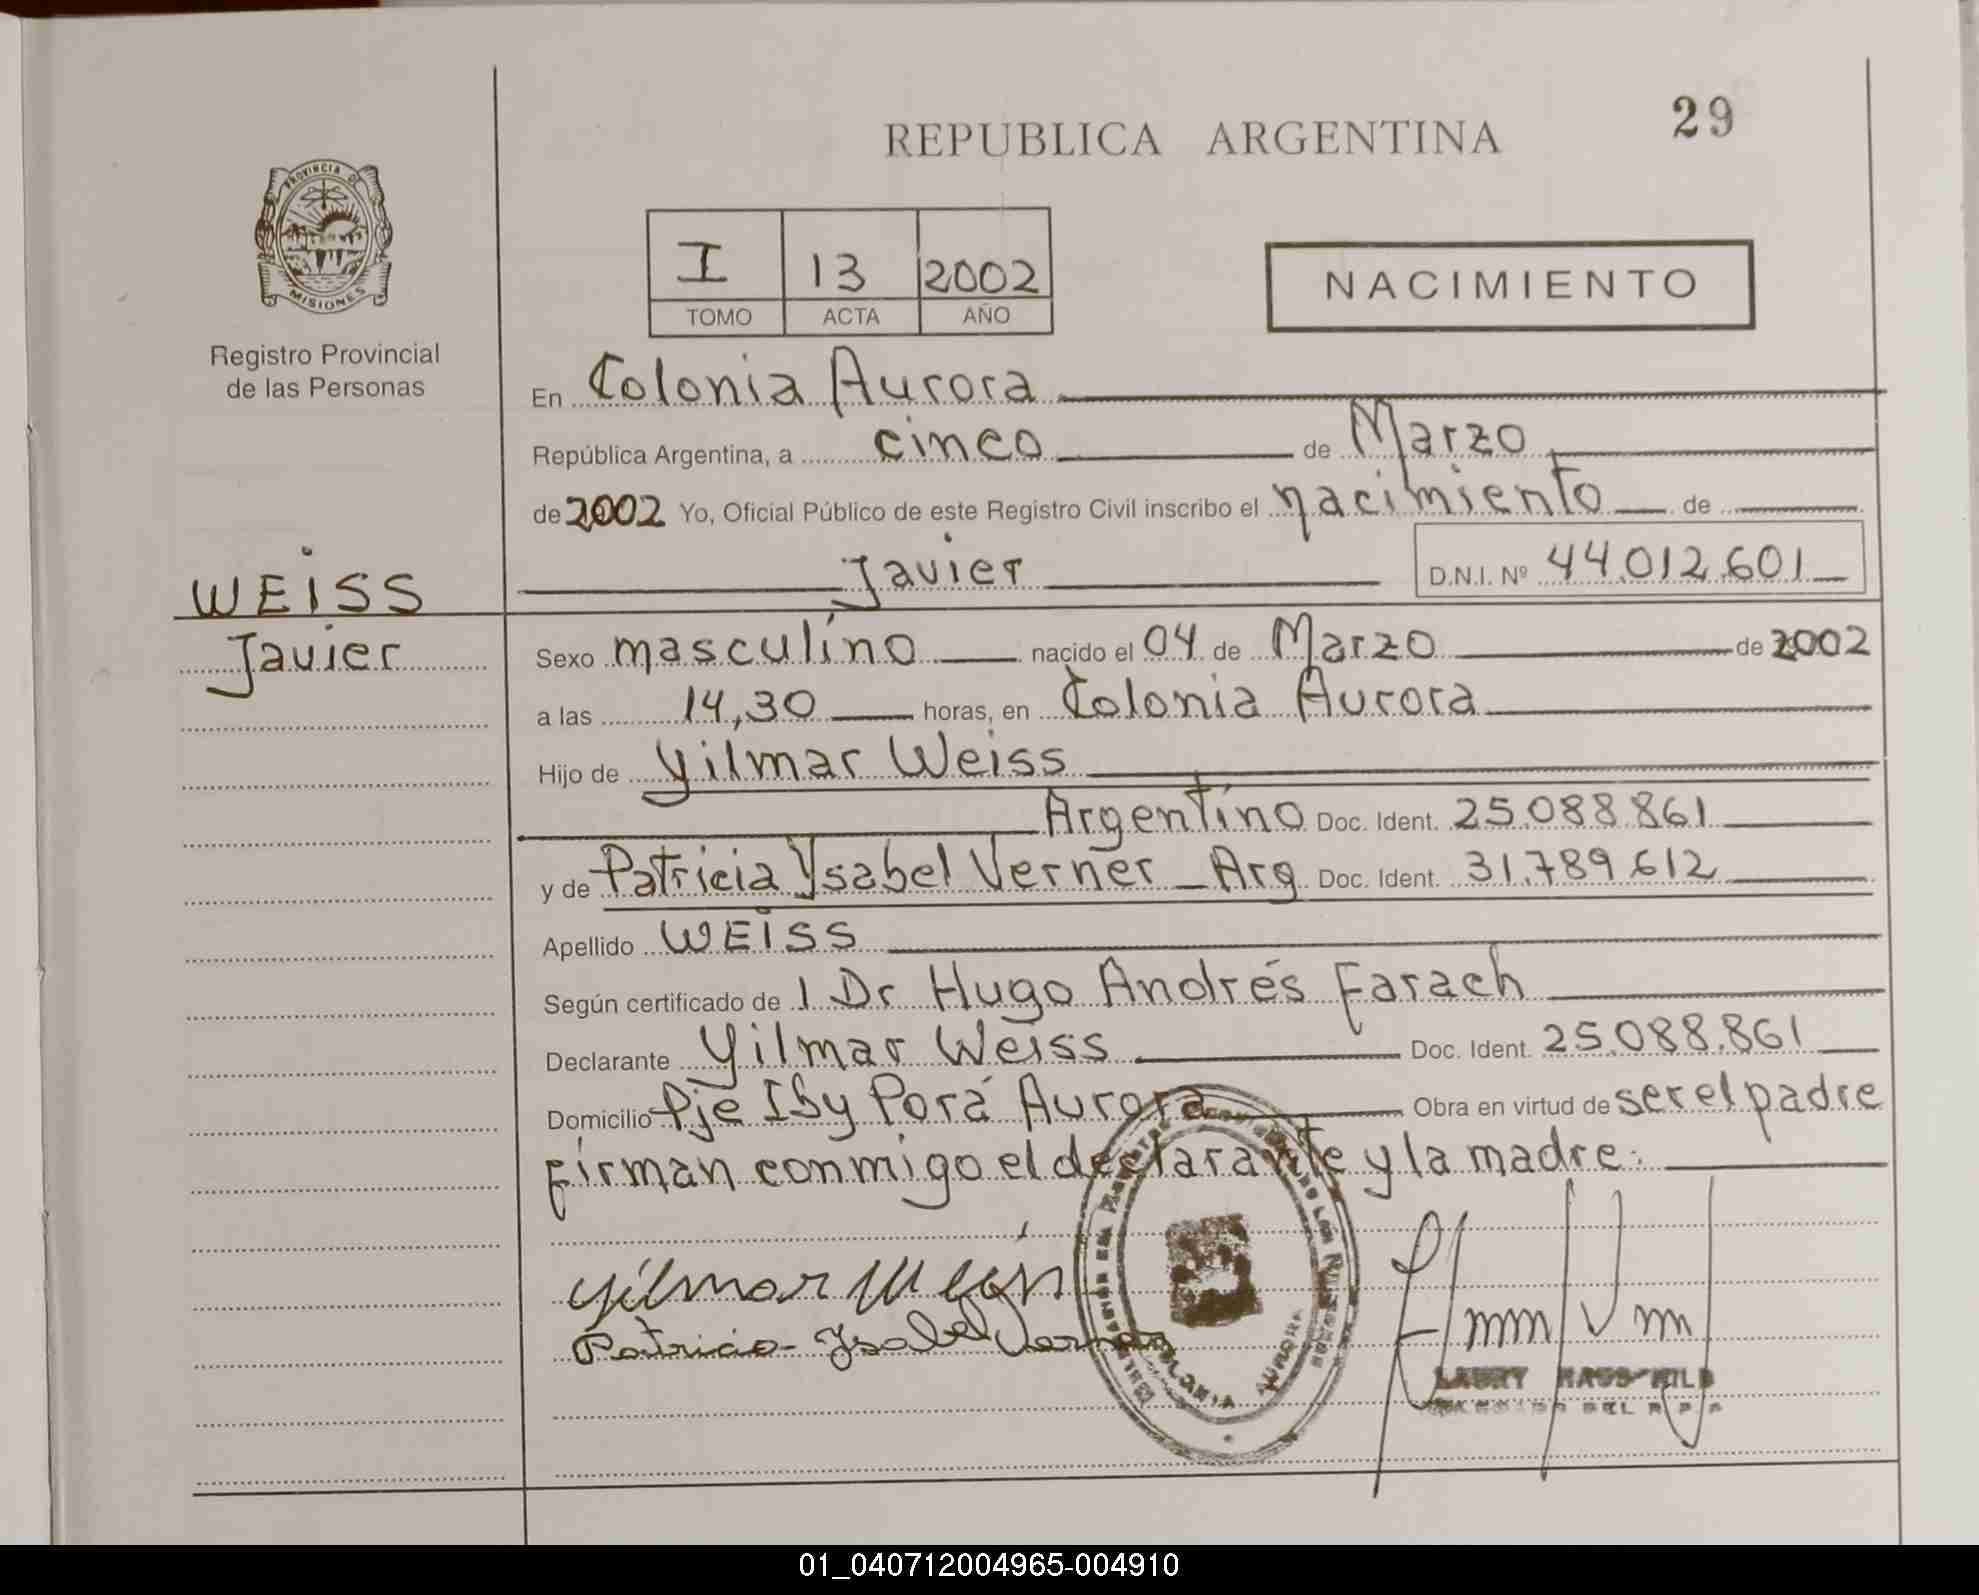 REPUBLICA ARGENTINA
29
PROVINCIA DE
MISIONES
Registro Provincial
de las Personas
I 13 2002
TOMO ACTA AÑO
NACIMIENTO
En Colonia Aurora
República Argentina, a cinco de Marzo
de 2002 Yo, Oficial Público de este Registro Civil inscribo el nacimiento de
Javier D.N.I. Nº 44.012.601
WEISS
Javier
Sexo masculino nacido el 04 de Marzo de 2002
a las 14,30 horas, en Colonia Aurora
Hijo de Yilmar Weiss
Argentino Doc. Ident. 25.088.861
y de Patricia Ysabel Verner _ Arg. Doc. Ident. 31.789.612
Apellido WEISS
Según certificado de 1 Dr Hugo Andrés Farach
Declarante Yilmar Weiss Doc. Ident. 25.088.861
Domicilio Pje Iby Porá Aurora Obra en virtud de ser el padre
firman conmigo el declarante y la madre.
Yilmar Weiss
Patricia Ysabel Verner
COLONIA AURORA
01_040712004965-004910